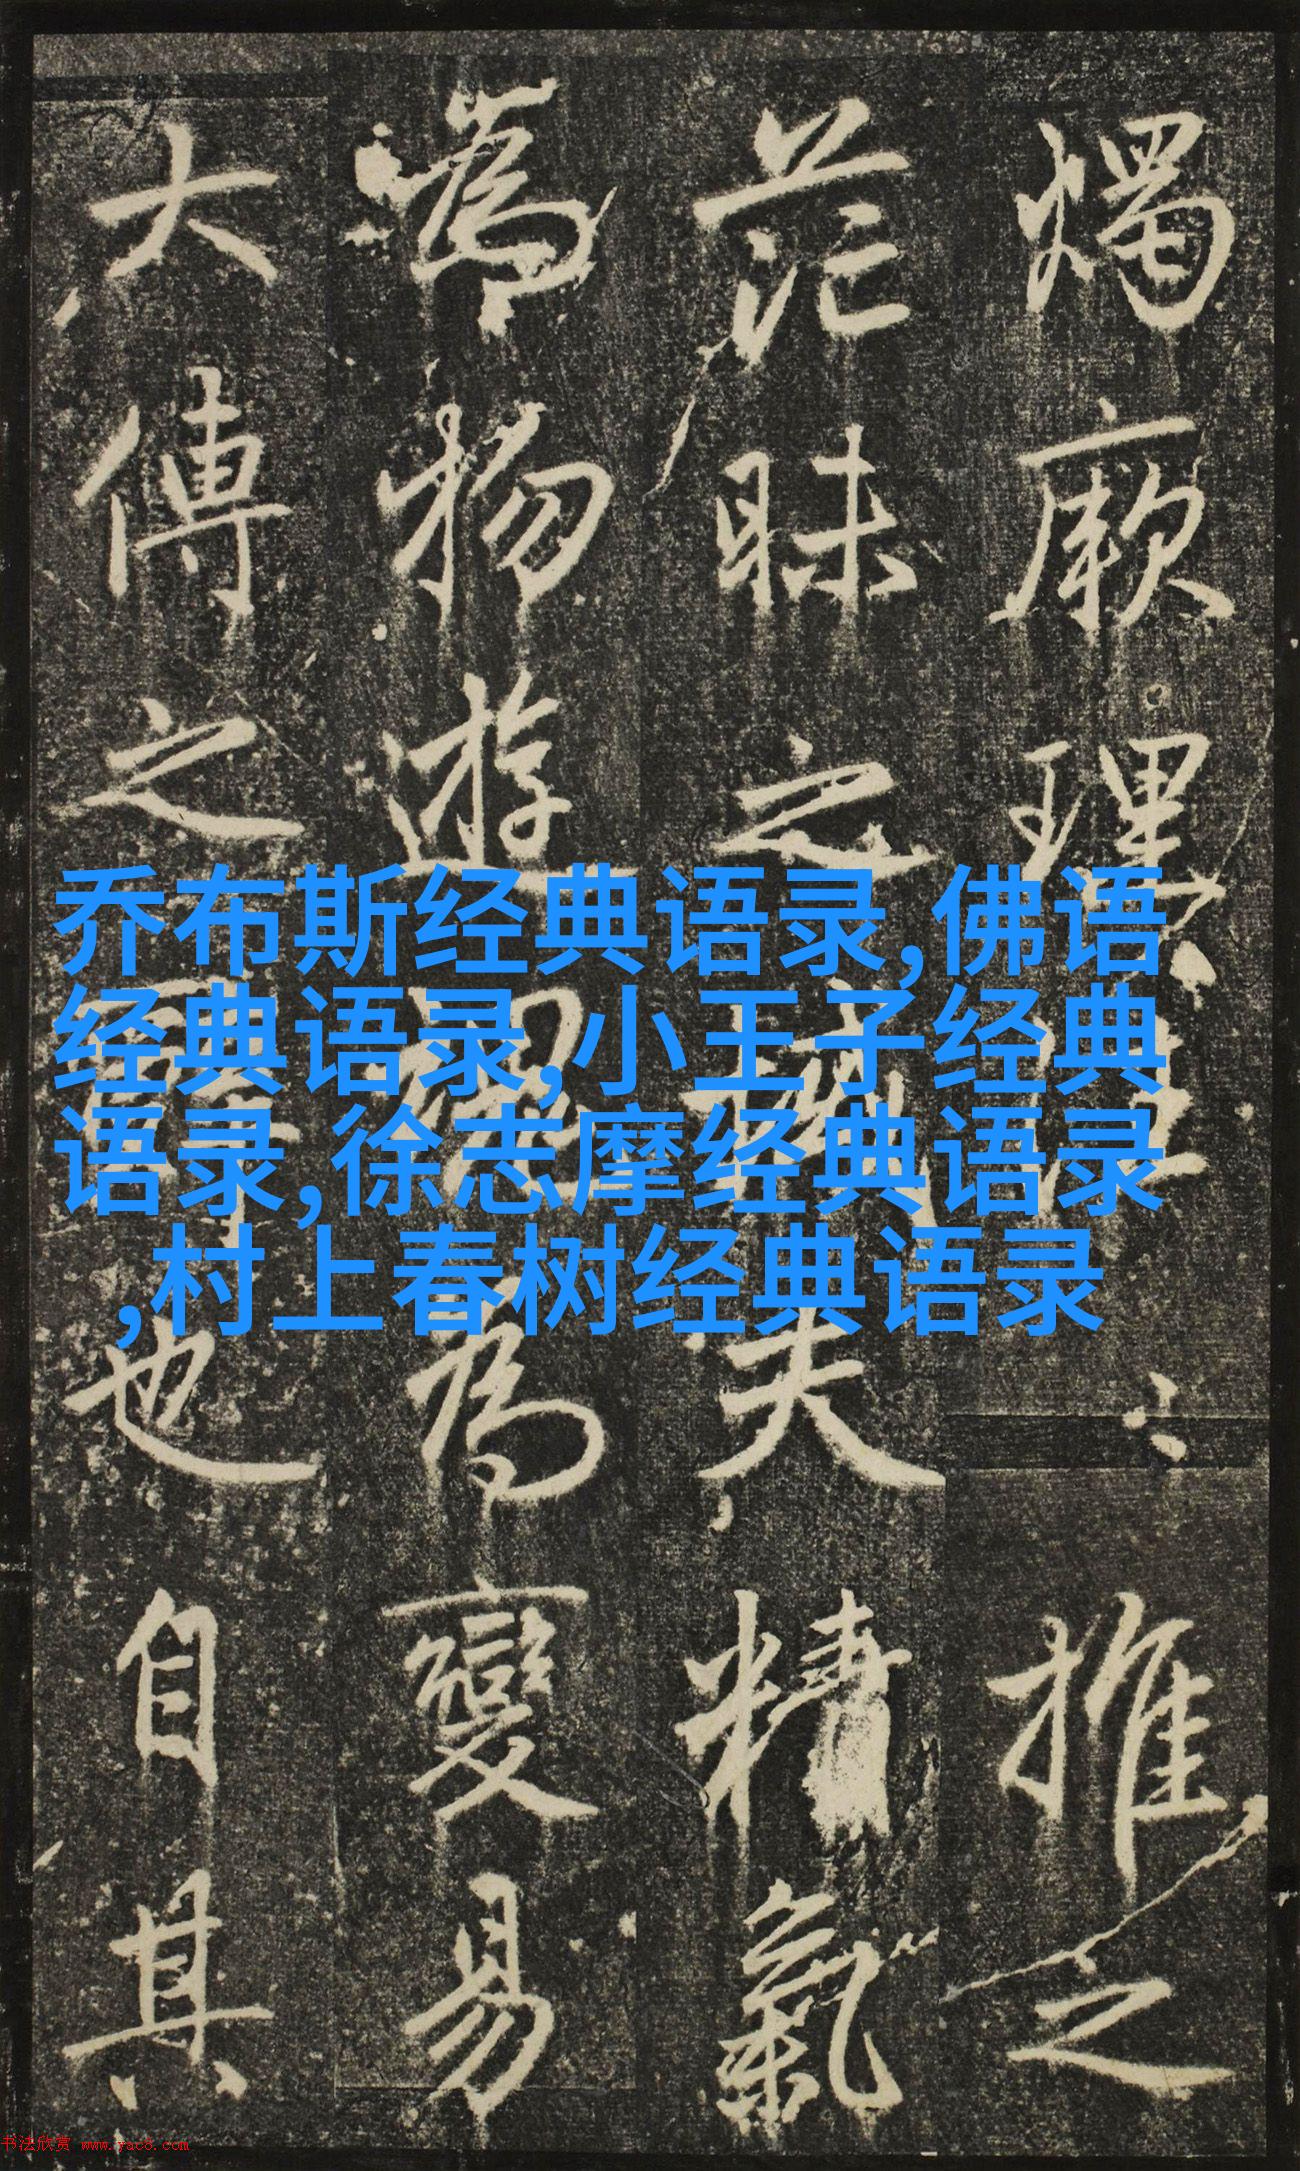 燭厥理推之
茫昧之夫精氣
為物遊為變易
大傳之也自其
乔布斯经典语录,佛语
经典语录,小王子经典
语录,徐志摩经典语录
,村上春树经典语录
书法欣赏 www.yac8.com